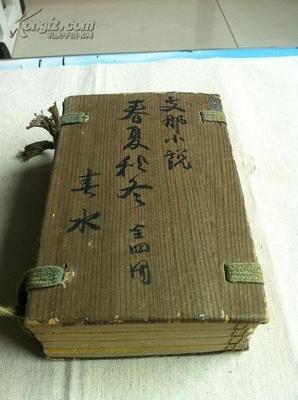 支那小説
春夏秋冬 全四冊
春水
Kongfz.com
孔夫子旧书网